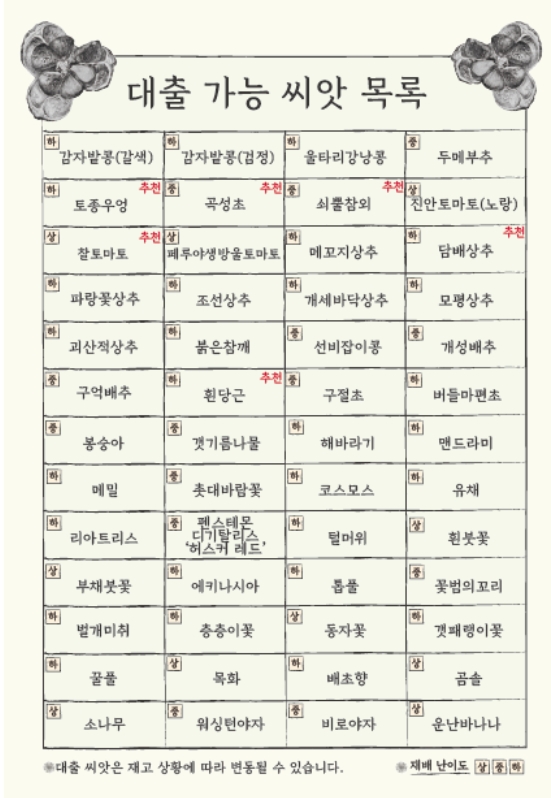 대출 가능 씨앗 목록
하 감자밭콩(갈색)
하 감자밭콩(검정)
하 울타리강낭콩
중 두메부추
하 토종우엉 추천
중 곡성초 추천
하 쇠뿔참외 추천
상 진안토마토(노랑)
상 찰토마토 추천
상 페루야생방울토마토
하 메꼬지상추
하 담배상추 추천
하 파랑꽃상추
하 조선상추
하 개세바닥상추
하 모평상추
하 괴산적상추
하 붉은참깨
중 선비잡이콩
중 개성배추
중 구억배추
하 흰당근 추천
중 구절초
하 버들마편초
중 봉숭아
중 갯기름나물
하 해바라기
하 맨드라미
하 메밀
중 촛대바람꽃
하 코스모스
하 유채
하 리아트리스
중 펜스테몬
디기탈리스
‘허스커 레드’
하 털머위
상 흰붓꽃
상 부채붓꽃
하 에키나시아
하 톱풀
중 꽃범의꼬리
하 벌개미취
하 층층이꽃
상 동자꽃
하 갯패랭이꽃
하 꿀풀
상 목화
하 배초향
상 곰솔
상 소나무
중 워싱턴야자
중 비로야자
상 운난바나나
대출 씨앗은 재고 상황에 따라 변동될 수 있습니다.
재배 난이도 상 중 하